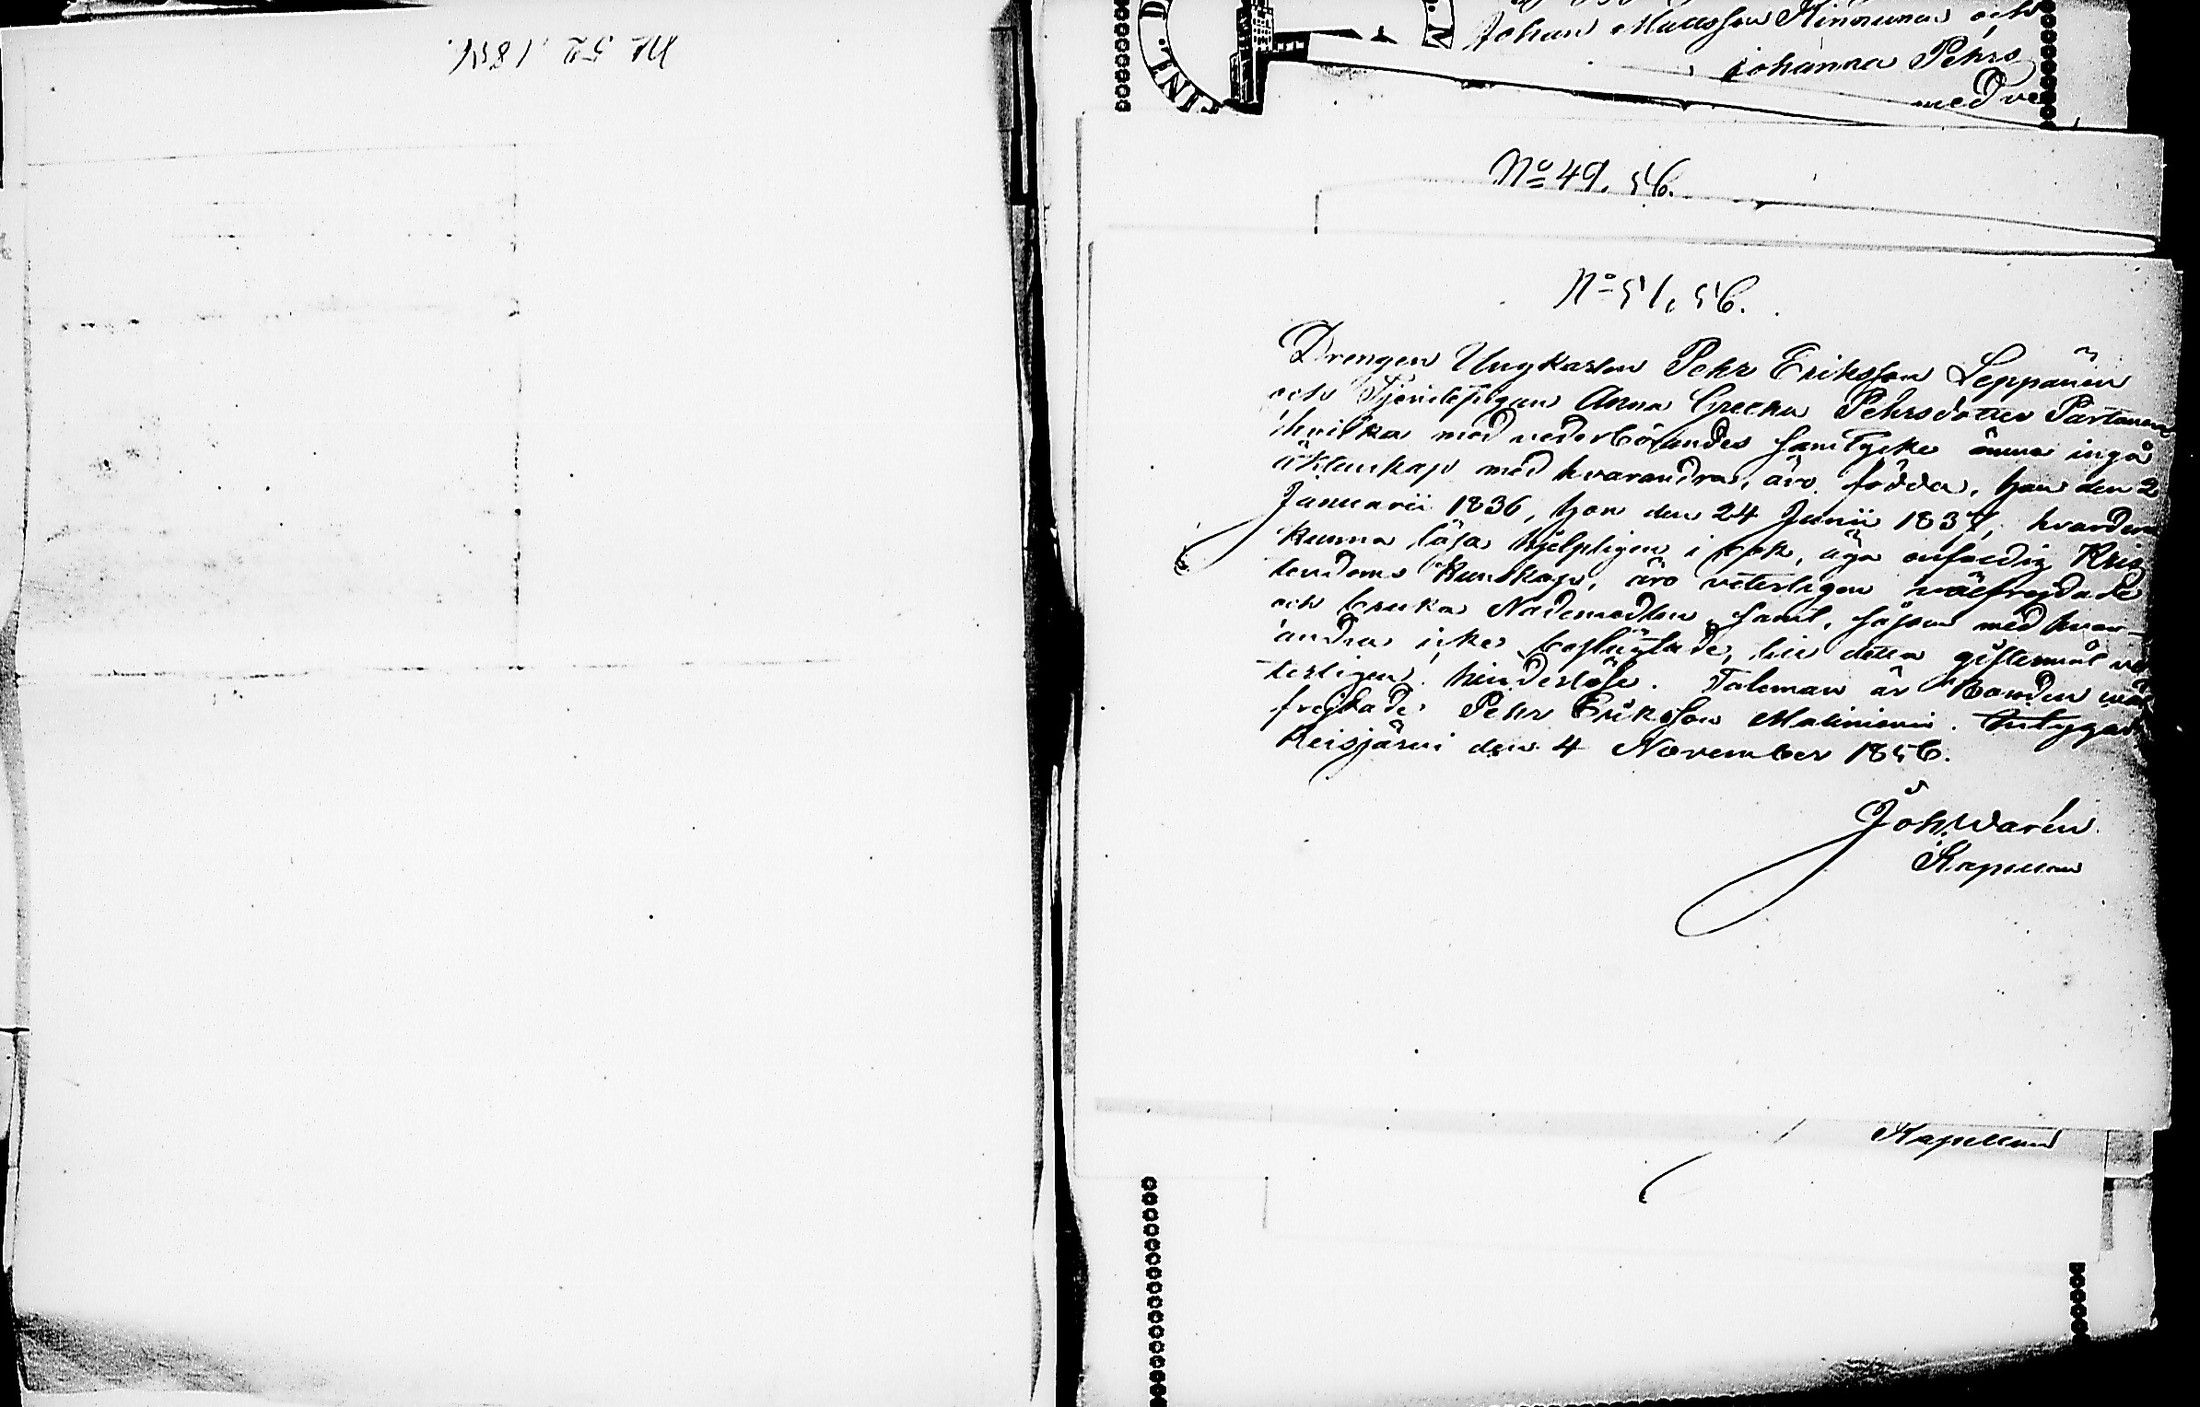 No 52. 1856.
Johan Mattsson Kinnunen och
johanna Pehrs
med ve
No 49. 56.
No 51. 56.
Drengen Ungkarlen Pehr Eriksson Leppänen
och Tjenstepigan Anna Greeta Pehrsdotter Partanen
hvilka med vederbörandes samtycke ämna ingå
äktenskap med hvarandra, äro födda, han den 2
Januarii 1836, hon den 24 Junii 1837, hvardera
kunna läsa hjelpligen i bok, äga enfaldig Kris
tendoms kunskap, äro veterligen wälfrejdade
och bruka Nademedlen samt, såsom med hvar-
andra icke beslägtade, till detta giftermål ve
terligen hinderlöse. Taleman är Bonden wäl
frejdade Pehr Eriksson Malinieni. Intygar
Reisjärvi den 4 November 1856.
Joh. Warén
Kapellan
Kapellan